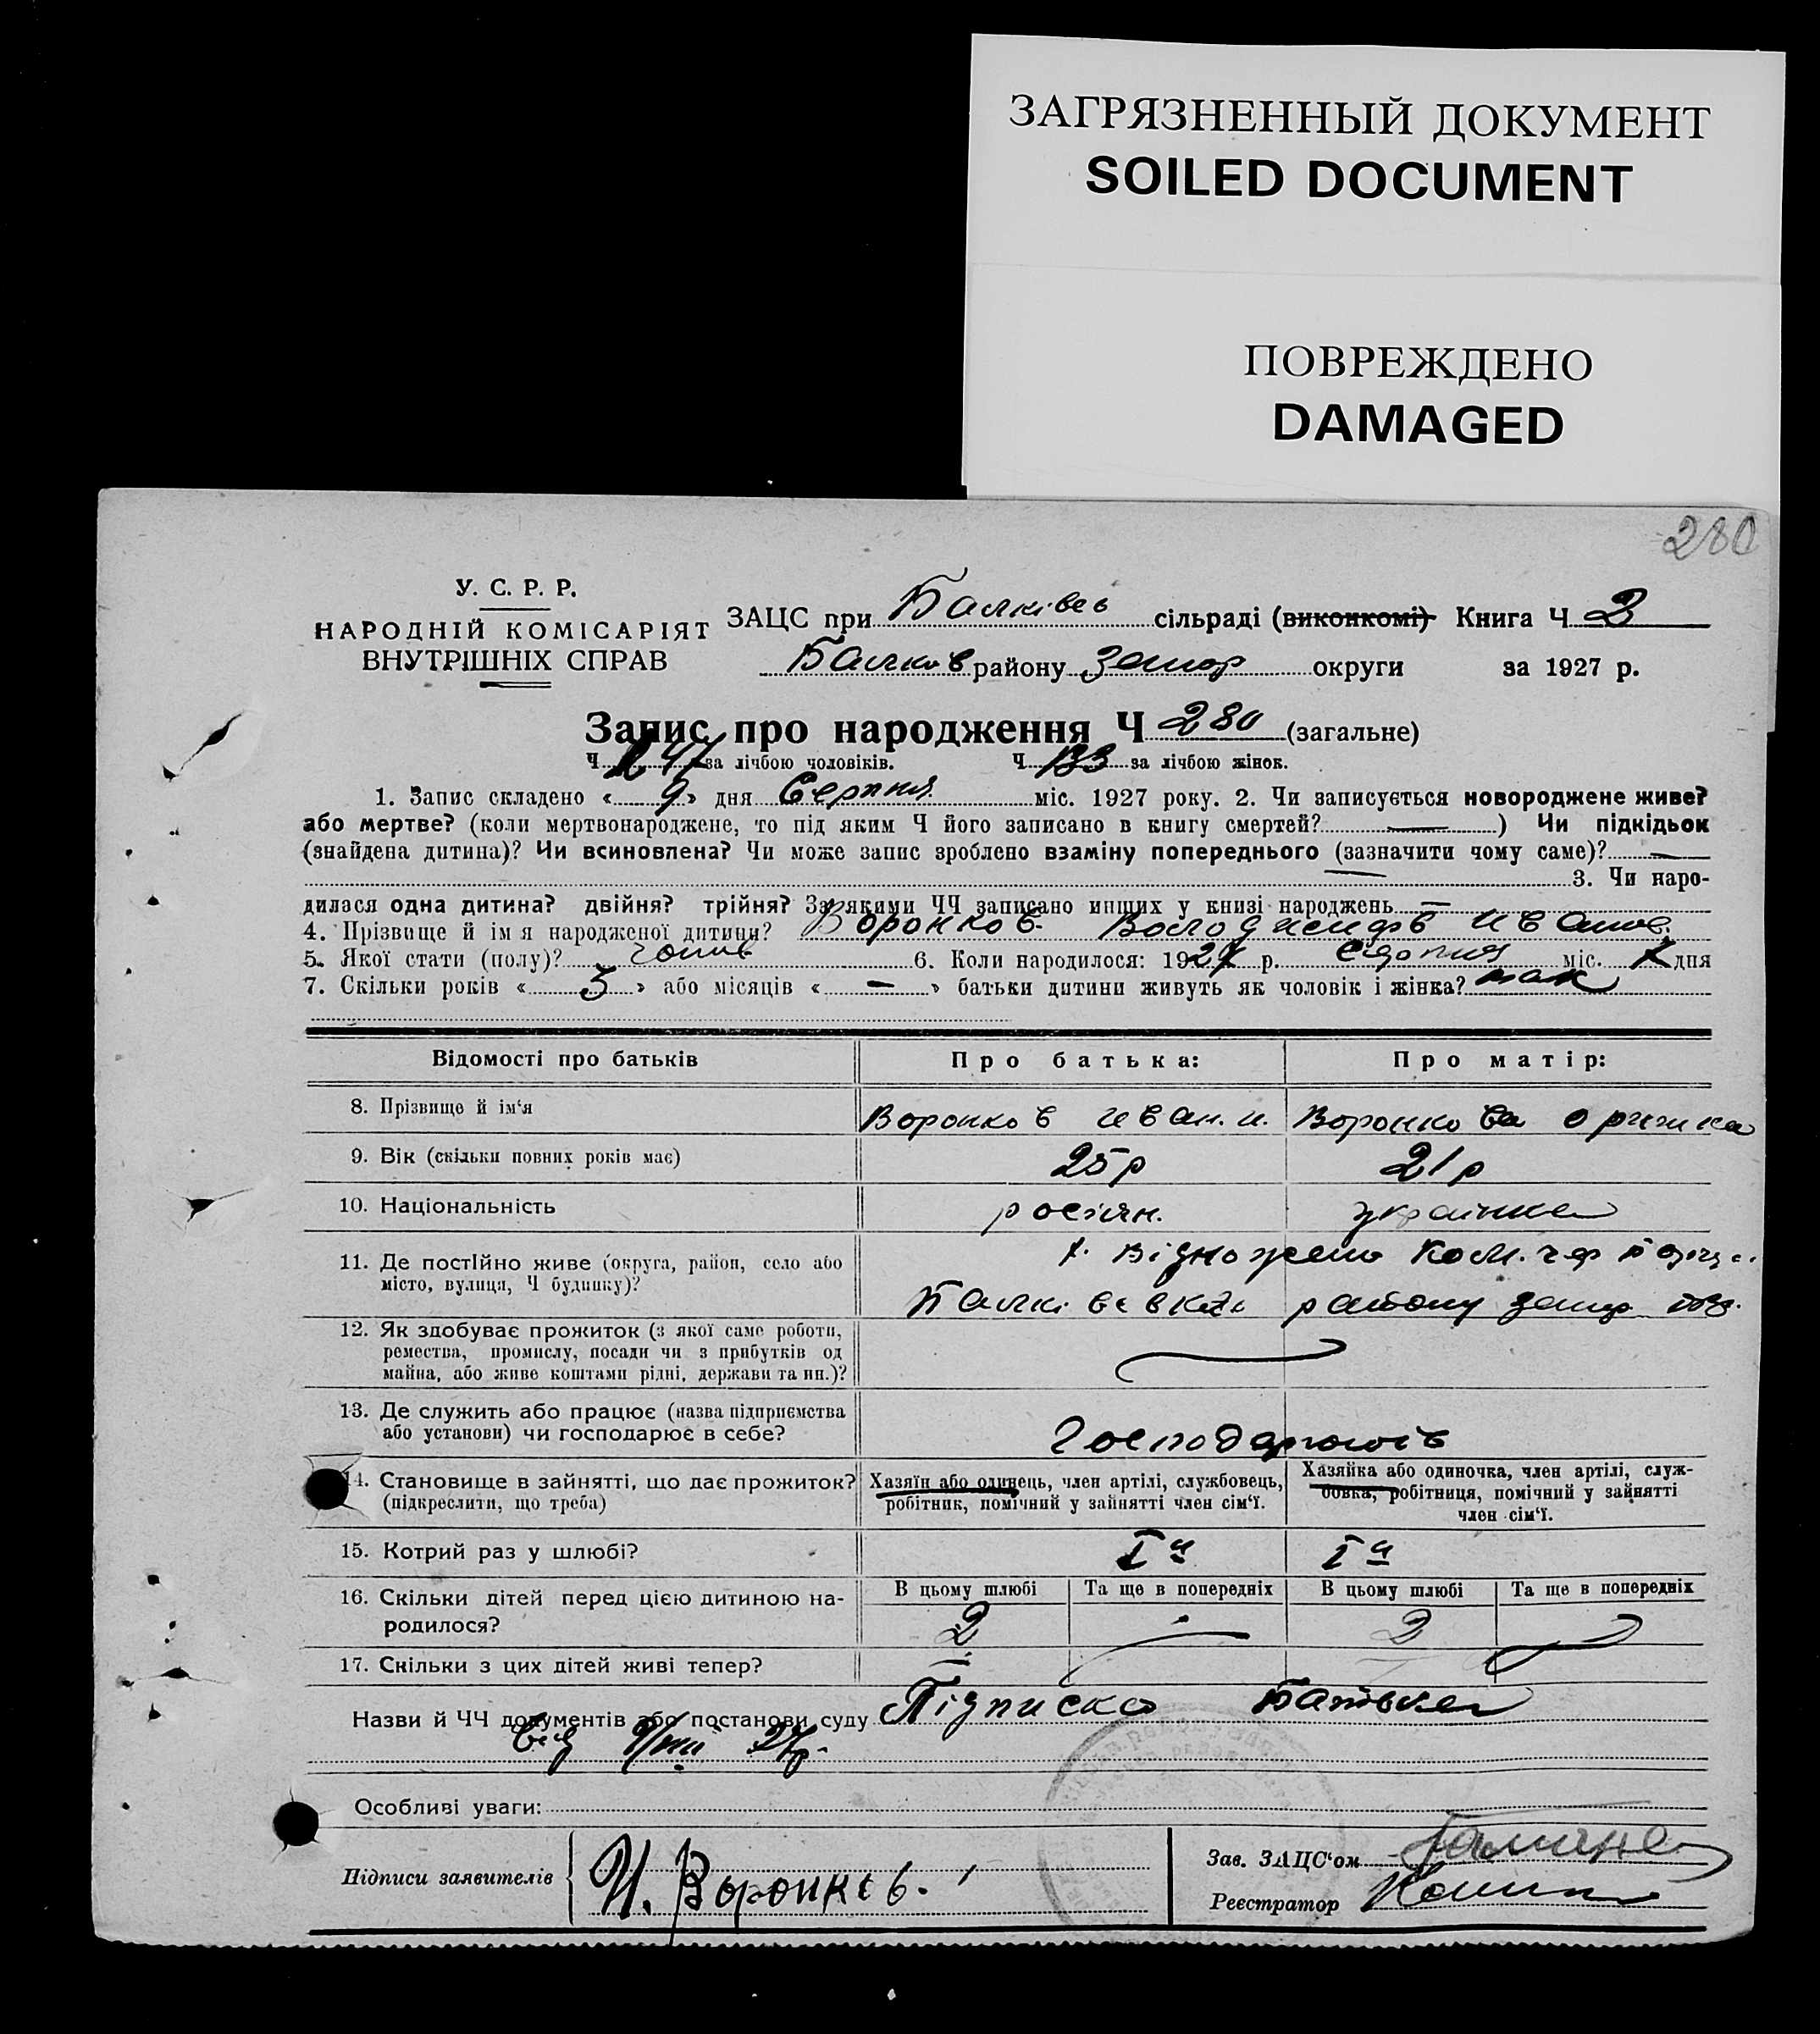 ЗАГРЯЗНЕННЫЙ ДОКУМЕНТ
SOILED DOCUMENT
ПОВРЕЖДЕНО
DAMAGED
280
У. С. Р. Р.
НАРОДНІЙ КОМІСАРІЯТ
ВНУТРІШНІХ СПРАВ
ЗАЦС при Балківсь сільраді (виконкомі) Книга Ч 2
Балків району Запор округи за 1927 р.
Запис про народження Ч 280 (загальне)
Ч 147 за лічбою чоловіків. Ч 133 за лічбою жінок.
1. Запис складено « 9 » дня Серпня міс. 1927 року. 2. Чи записується новороджене живе?
або мертве? (коли мертвонароджене, то під яким Ч його записано в книгу смертей? — ) Чи підкідьок
(знайдена дитина)? Чи всиновлена? Чи може запис зроблено взаміну попереднього (зазначити чому саме)? —
— 3. Чи наро-
дилася одна дитина? двійня? трійня? За якими ЧЧ записано инших у книзі народжень —
4. Прізвище й ім я народженої дитини? Воронков Володимир Иванов.
5. Якої стати (полу)? чолов 6. Коли народилося: 1927 р. серпня міс. дня
7. Скільки років « 3 » або місяців « — » батьки дитини живуть як чоловік і жінка? так
Відомості про батьків
Про батька:
Про матір:
8. Прізвище й ім'я
Воронков Иван. И.
Воронкова Оришка
9. Вік (скільки повних років має)
25 р
21 р
10. Національність
росіян.
українка
11. Де постійно живе (округа, район, село або
місто, вулиця, Ч будинку)?
Балківськ району запор
12. Як здобуває прожиток (з якої саме роботи,
ремества, промислу, посади чи з прибутків од
майна, або живе коштами рідні, держави та ин.)?
13. Де служить або працює (назва підприємства
або установи) чи господарює в себе?
14. Становище в зайнятті, що дає прожиток?
(підкреслити, що треба)
Хазяїн або одинець, член артілі, службовець,
робітник, помічний у зайнятті член сім'ї.
Хазяйка або одиночка, член артілі, служ-
бовка, робітниця, помічний у зайнятті
член сім'ї.
15. Котрий раз у шлюбі?
I й
I й
16. Скільки дітей перед цією дитиною на-
родилося?
В цьому шлюбі
Та ще в попередніх
В цьому шлюбі
Та ще в попередніх
2
2
17. Скільки з цих дітей живі тепер?
Назви й ЧЧ документів або постанови суду Підписка Батька
від 9/VIII 27 р.
Особливі уваги:
Підписи заявителів
И. Воронков.
Зав. ЗАЦС'ом
Реєстратор